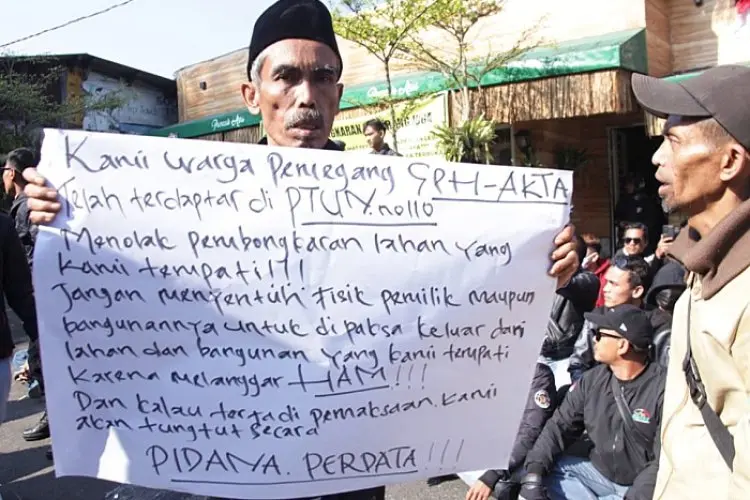 Kami warga Pemegang SPH-AKTA
Telah terdaptar di PTUN.no110
Menolak pembongkaran lahan yang
kami tempati!!!
Jangan menyentuh fisik pemilik maupun
bangunannya untuk di paksa keluar dari
lahan dan bangunan yang kami tempati
Karena melanggar HAM!!!
Dan kalau terjadi pemaksaan. kami
akan tungtut secara
PIDANA. PERPATA!!!